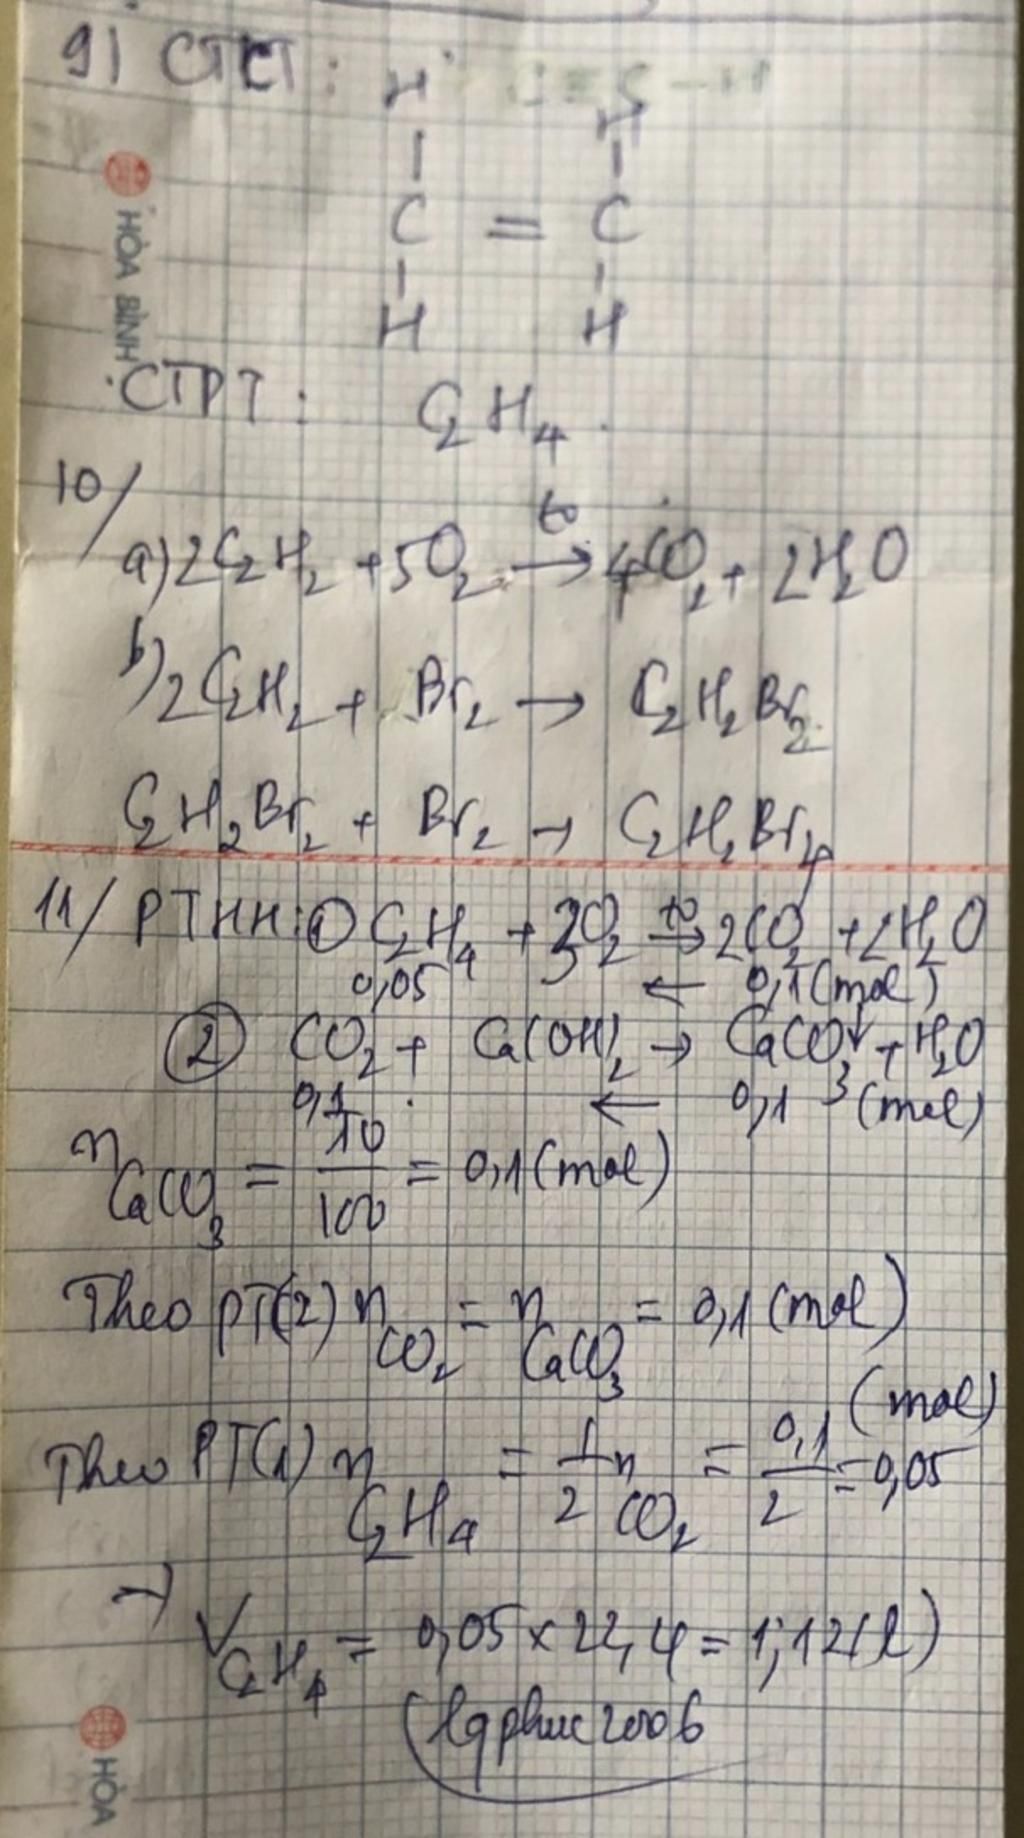 9) CTCT:
H H
C = C
H H
HÒA BÌNH
CTPT: C2H4.
10/
a) 2C2H2 + 5O2 →(to) 4CO2 + 2H2O
b) 2C2H2 + Br2 → C2H2Br2
C2H2Br2 + Br2 → C2H2Br4
11/ PTHH: ① C2H4 + 3O2 →(to) 2CO2 + 2H2O
0,05 ← 0,1 (mol)
② CO2 + Ca(OH)2 → CaCO3↓ + H2O
0,1 ← 0,1 (mol)
nCaCO3 = 10/100 = 0,1 (mol)
Theo PT(2) nCO2 = nCaCO3 = 0,1 (mol)
Theo PT(1) nC2H4 = 1/2 nCO2 = 0,1/2 = 0,05 (mol)
→ VC2H4 = 0,05 x 22,4 = 1,12 (l)
lqphuc2006
HÒA